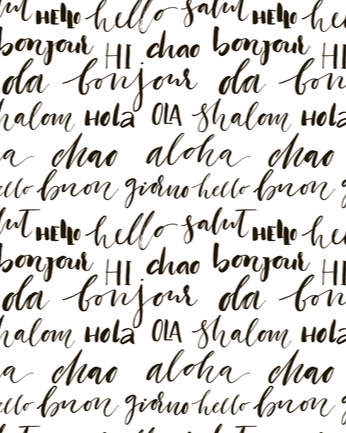 salut HELLO hello salut HELLO hello
bonjour HI chao bonjour HI
ola bonjour ola bon
shalom HOLA OLA shalom HOLA
a chao aloha chao
hello buon giorno hello buon g
salut HELLO hello salut HELLO he
bonjour HI chao bonjour HI
ola bonjour ola bon
shalom HOLA OLA shalom HOLA
a chao aloha chao
hello buon giorno hello buon g